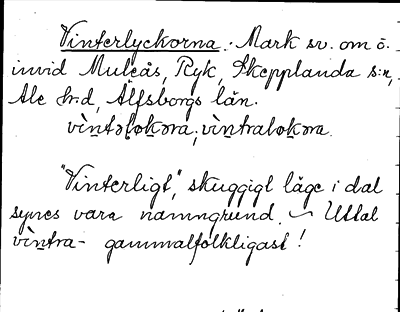 Vinterlyckorna. Mark sv. om ö.
invid Muleås, Ryk, Skepplanda s:n,
Ale h:d, Älfsborgs län.
vìntəlokəra, vìntralokəra.
"Vinterligt", skuggigt läge i dal
synes vara namngrund. ~ Uttal
vìntra- gammalfolkligast!